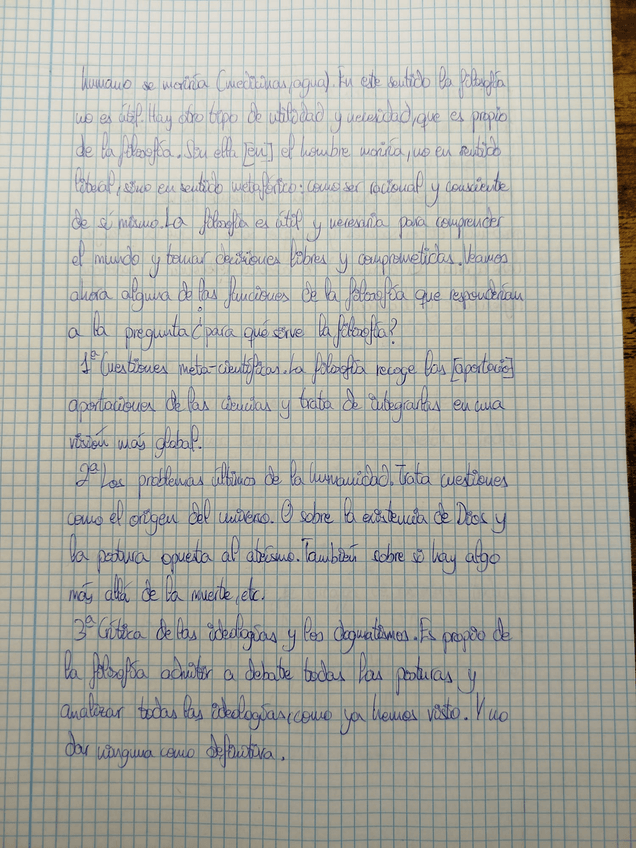 humano se moriría (medicinas, agua). En este sentido la filosofía
no es útil. Hay otro tipo de utilidad y necesidad, que es propio
de la filosofía. Sin ella [en] el hombre moriría, no en sentido
literal, sino en sentido metafórico: como ser racional y consciente
de sí mismo. La filosofía es útil y necesaria para comprender
el mundo y tomar decisiones libres y comprometidas. Veamos
ahora alguna de las funciones de la filosofía que responderían
a la pregunta ¿para qué sirve la filosofía?
1ª Cuestiones meta-científicas. La filosofía recoge las [aportacio]
aportaciones de las ciencias y trata de integrarlas en una
visión más global.
2ª Los problemas últimos de la humanidad. Trata cuestiones
como el origen del universo. O sobre la existencia de Dios y
la postura opuesta al ateísmo. También sobre si hay algo
más allá de la muerte, etc.
3ª Crítica de las ideologías y los dogmatismos. Es propio de
la filosofía admitir a debate todas las posturas y
analizar todas las ideologías, como ya hemos visto. Y no
dar ninguna como definitiva.